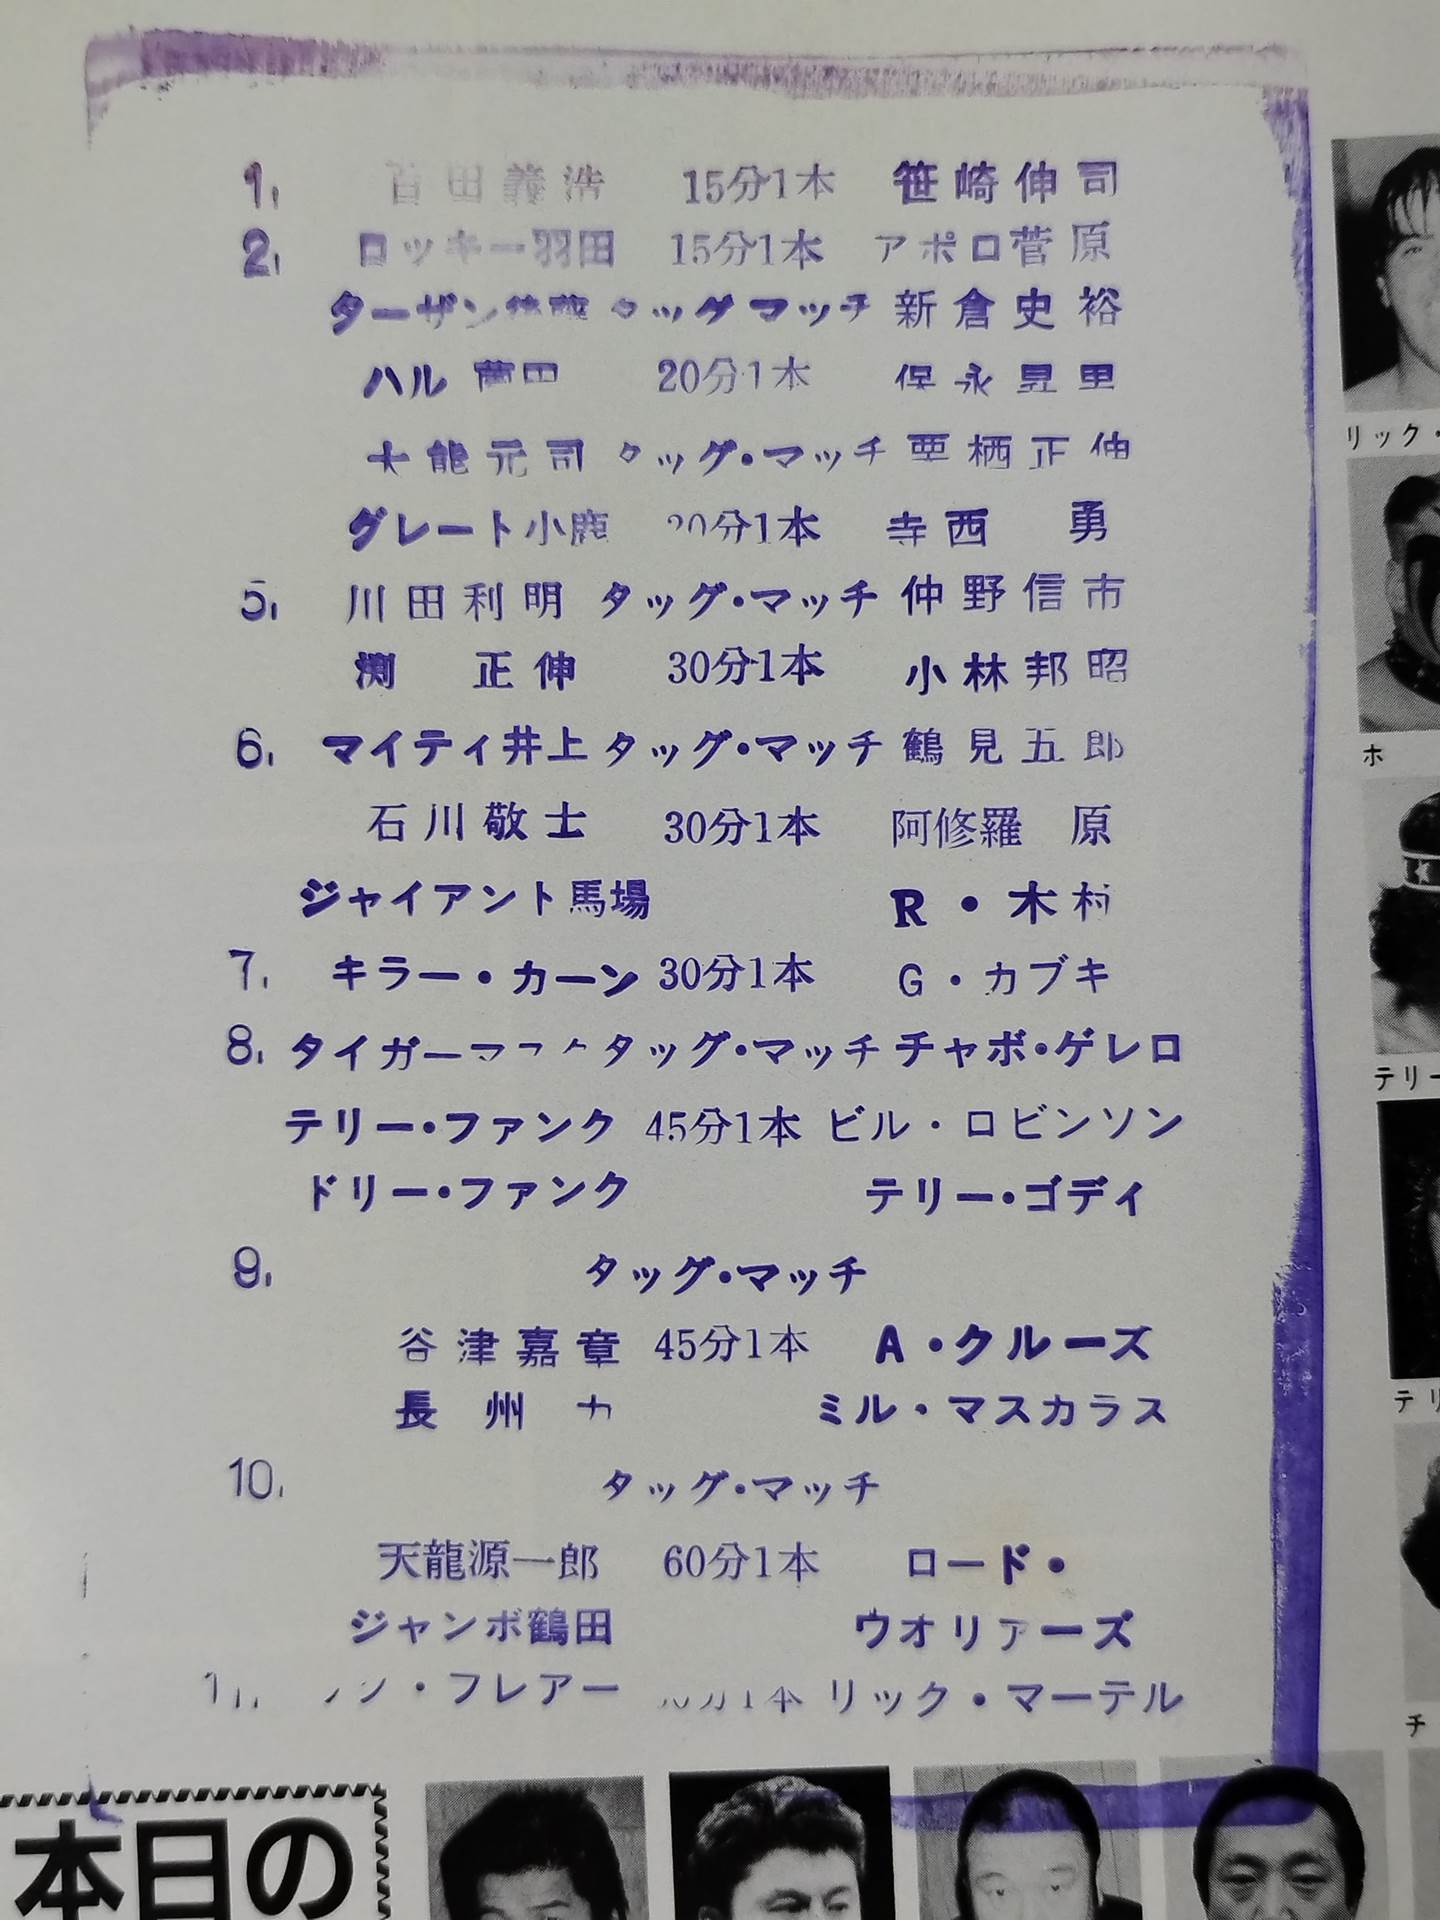 1. 百田義浩 15分1本 笹崎伸司
2. ロッキー羽田 15分1本 アポロ菅原
ターザン後藤 タッグマッチ 新倉史裕
ハル薗田 20分1本 保永昇男
大熊元司 タッグ・マッチ 栗栖正伸
グレート小鹿 20分1本 寺西 勇
5. 川田利明 タッグ・マッチ 仲野信市
渕 正伸 30分1本 小林邦昭
6. マイティ井上 タッグ・マッチ 鶴見五郎
石川敬士 30分1本 阿修羅 原
ジャイアント馬場 R・木村
7. キラー・カーン 30分1本 G・カブキ
8. タイガーマスク タッグ・マッチ チャボ・ゲレロ
テリー・ファンク 45分1本 ビル・ロビンソン
ドリー・ファンク テリー・ゴディ
9. タッグ・マッチ
谷津嘉章 45分1本 A・クルーズ
長州力 ミル・マスカラス
10. タッグ・マッチ
天龍源一郎 60分1本 ロード・
ジャンボ鶴田 ウオリアーズ
11. ・フレアー 分1本 リック・マーテル
本日の
リック・
ホ
テリー
テリ
チ